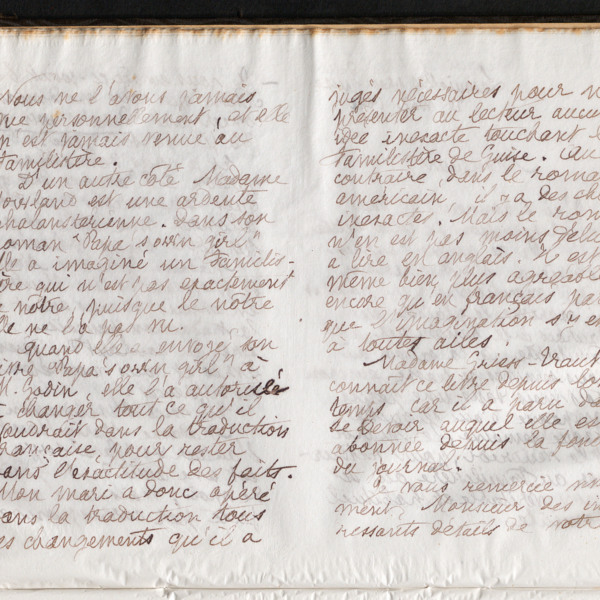 Nous ne l'avons jamais
vue personnellement, et elle
n'est jamais venue au
Familistère.
D'un autre côté Madame
Howland est une ardente
phalanstérienne. Dans son
roman "Papa's own girl"
elle a imaginé un Familis-
tère qui n'est pas exactement
le nôtre, puisque le nôtre
elle ne l'a pas vu.
Quand elle a envoyé son
livre "Papa's own girl" à
M. Godin, elle l'a autorisé
à changer tout ce qu'il
voudrait dans la traduction
française, pour rester
dans l'exactitude des faits.
Mon mari a donc opéré
dans la traduction tous
les changements qu'il a
jugés nécessaires pour n
présenter au lecteur aucu
idée inexacte touchant l
Familistère de Guise. Au
contraire, dans le roma
américain, il y a des cho
inexactes. Mais le rom
n'en est pas moins déli
à lire en anglais. Il est
même bien plus agréabl
encore qu'en français par
que l'imagination s'y en
à toutes ailes.
Madame Griess-Traut
connaît ce livre depuis lon
temps car il a paru da
Le Devoir auquel elle es
abonnée depuis la fon
du journal.
Je vous remercie
ment, Monsieur des in
ressants détails de votr